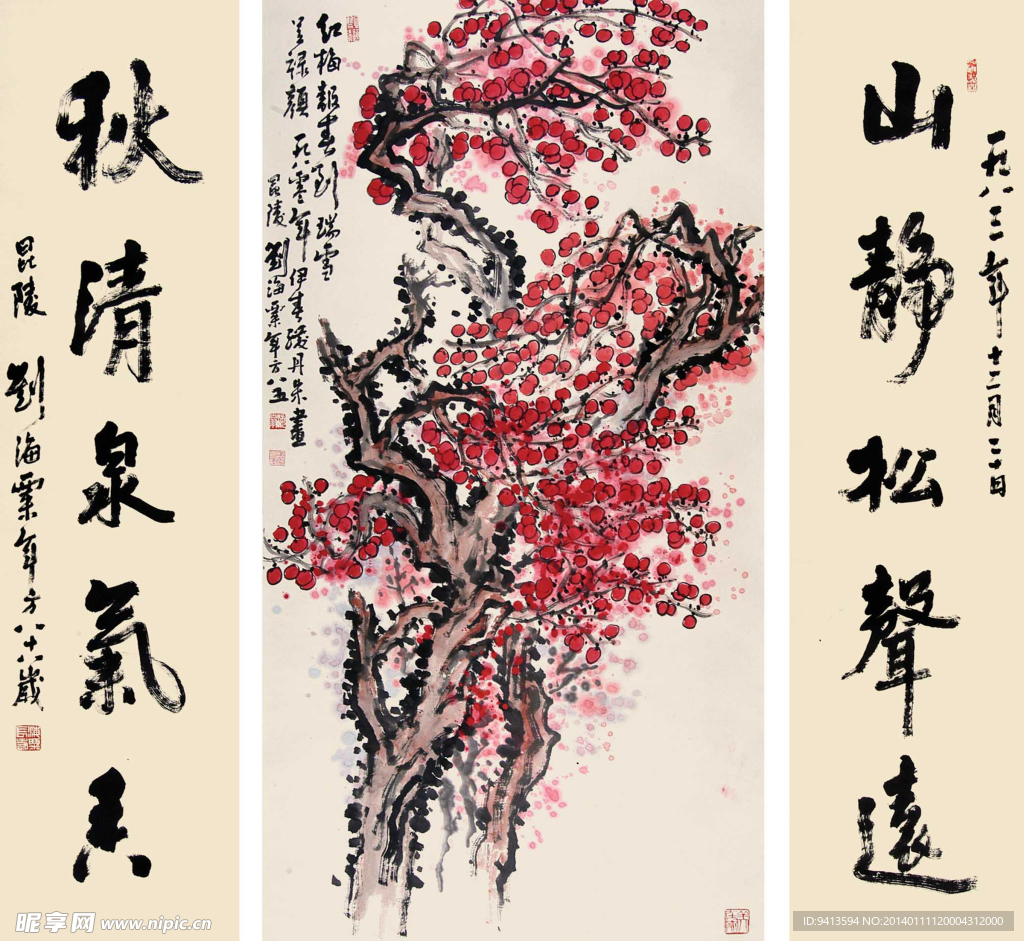 山靜松聲遠
一九八三年十二月二十日
紅梅報春到瑞雪
兆禄顏 一九八零年伊春
丹朱畫
昆陵劉海粟年方八五
秋清泉氣香
昆陵 劉海粟年方八十八歲
昵享网 www.nipic.cn
ID:9413594 NO:20140111120004312000